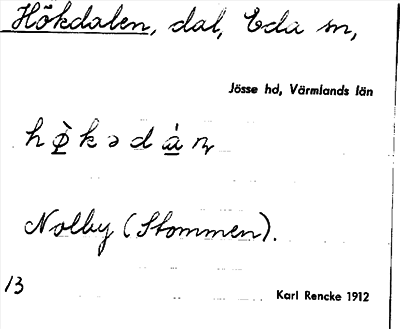 Hökdalen, dal, Eda sn,
Jösse hd, Värmlands län
hø̀kədán
Nolby (Stommen).
13
Karl Rencke 1912